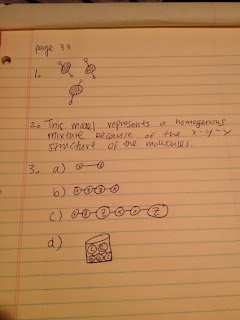 page 33
1.
2. This model represents a homogenous
mixture because of the x-y-x
structure of the molecules.
3. a)
b)
c)
d)